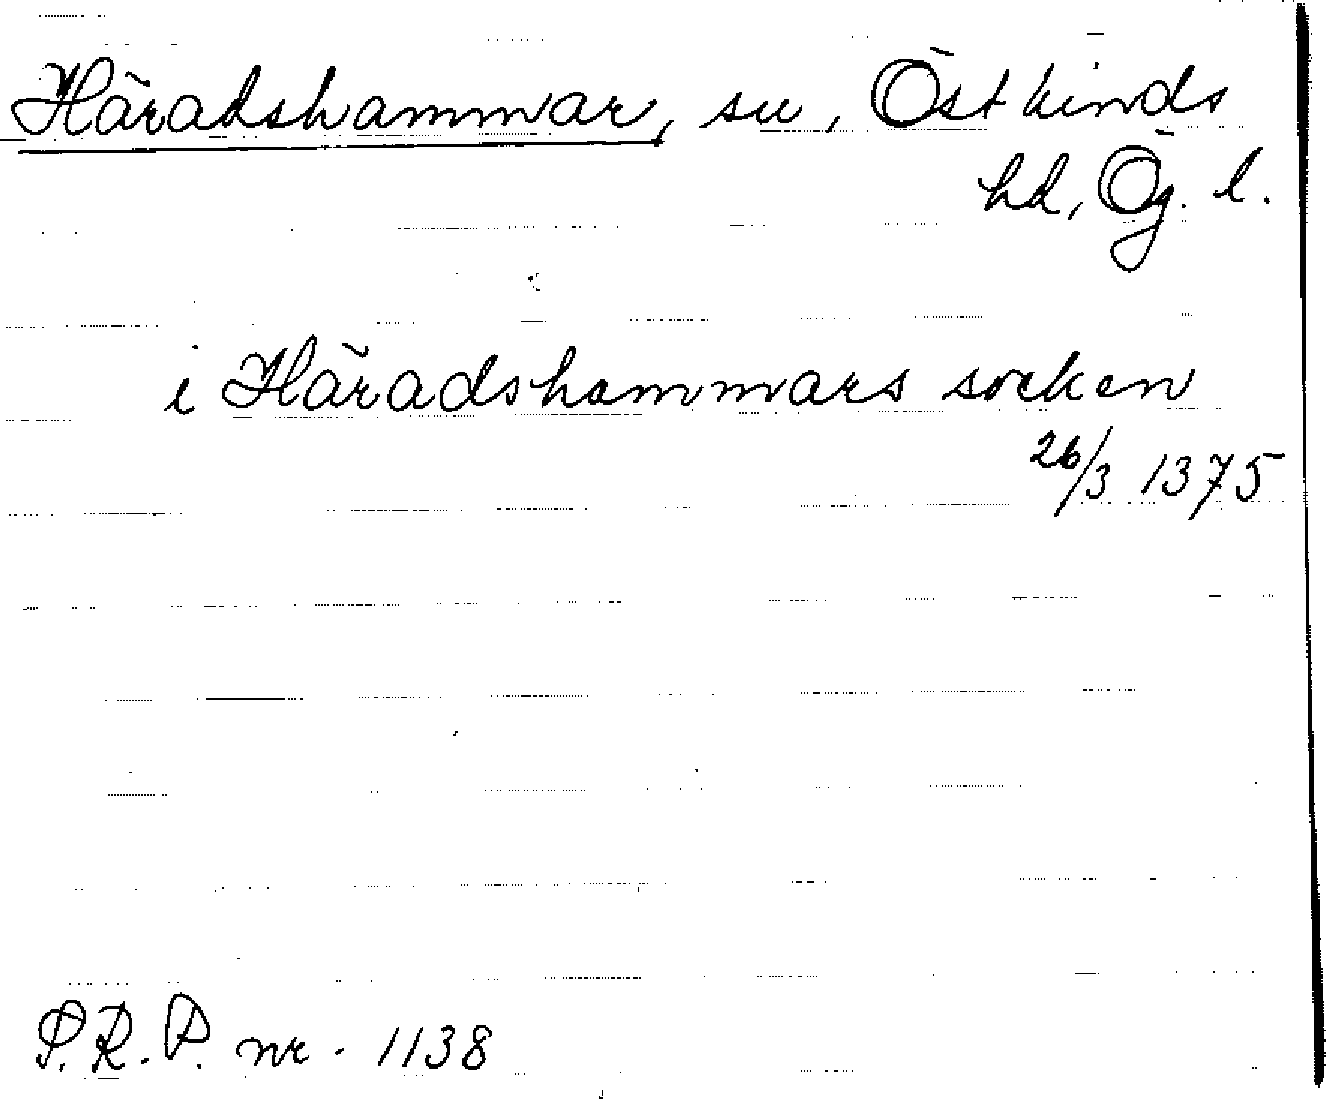 Häradshammar, sn, Östkinds
hd, Ög. l.
i Häradshammars socken
26/3 1375
S.R.P. nr. 1138